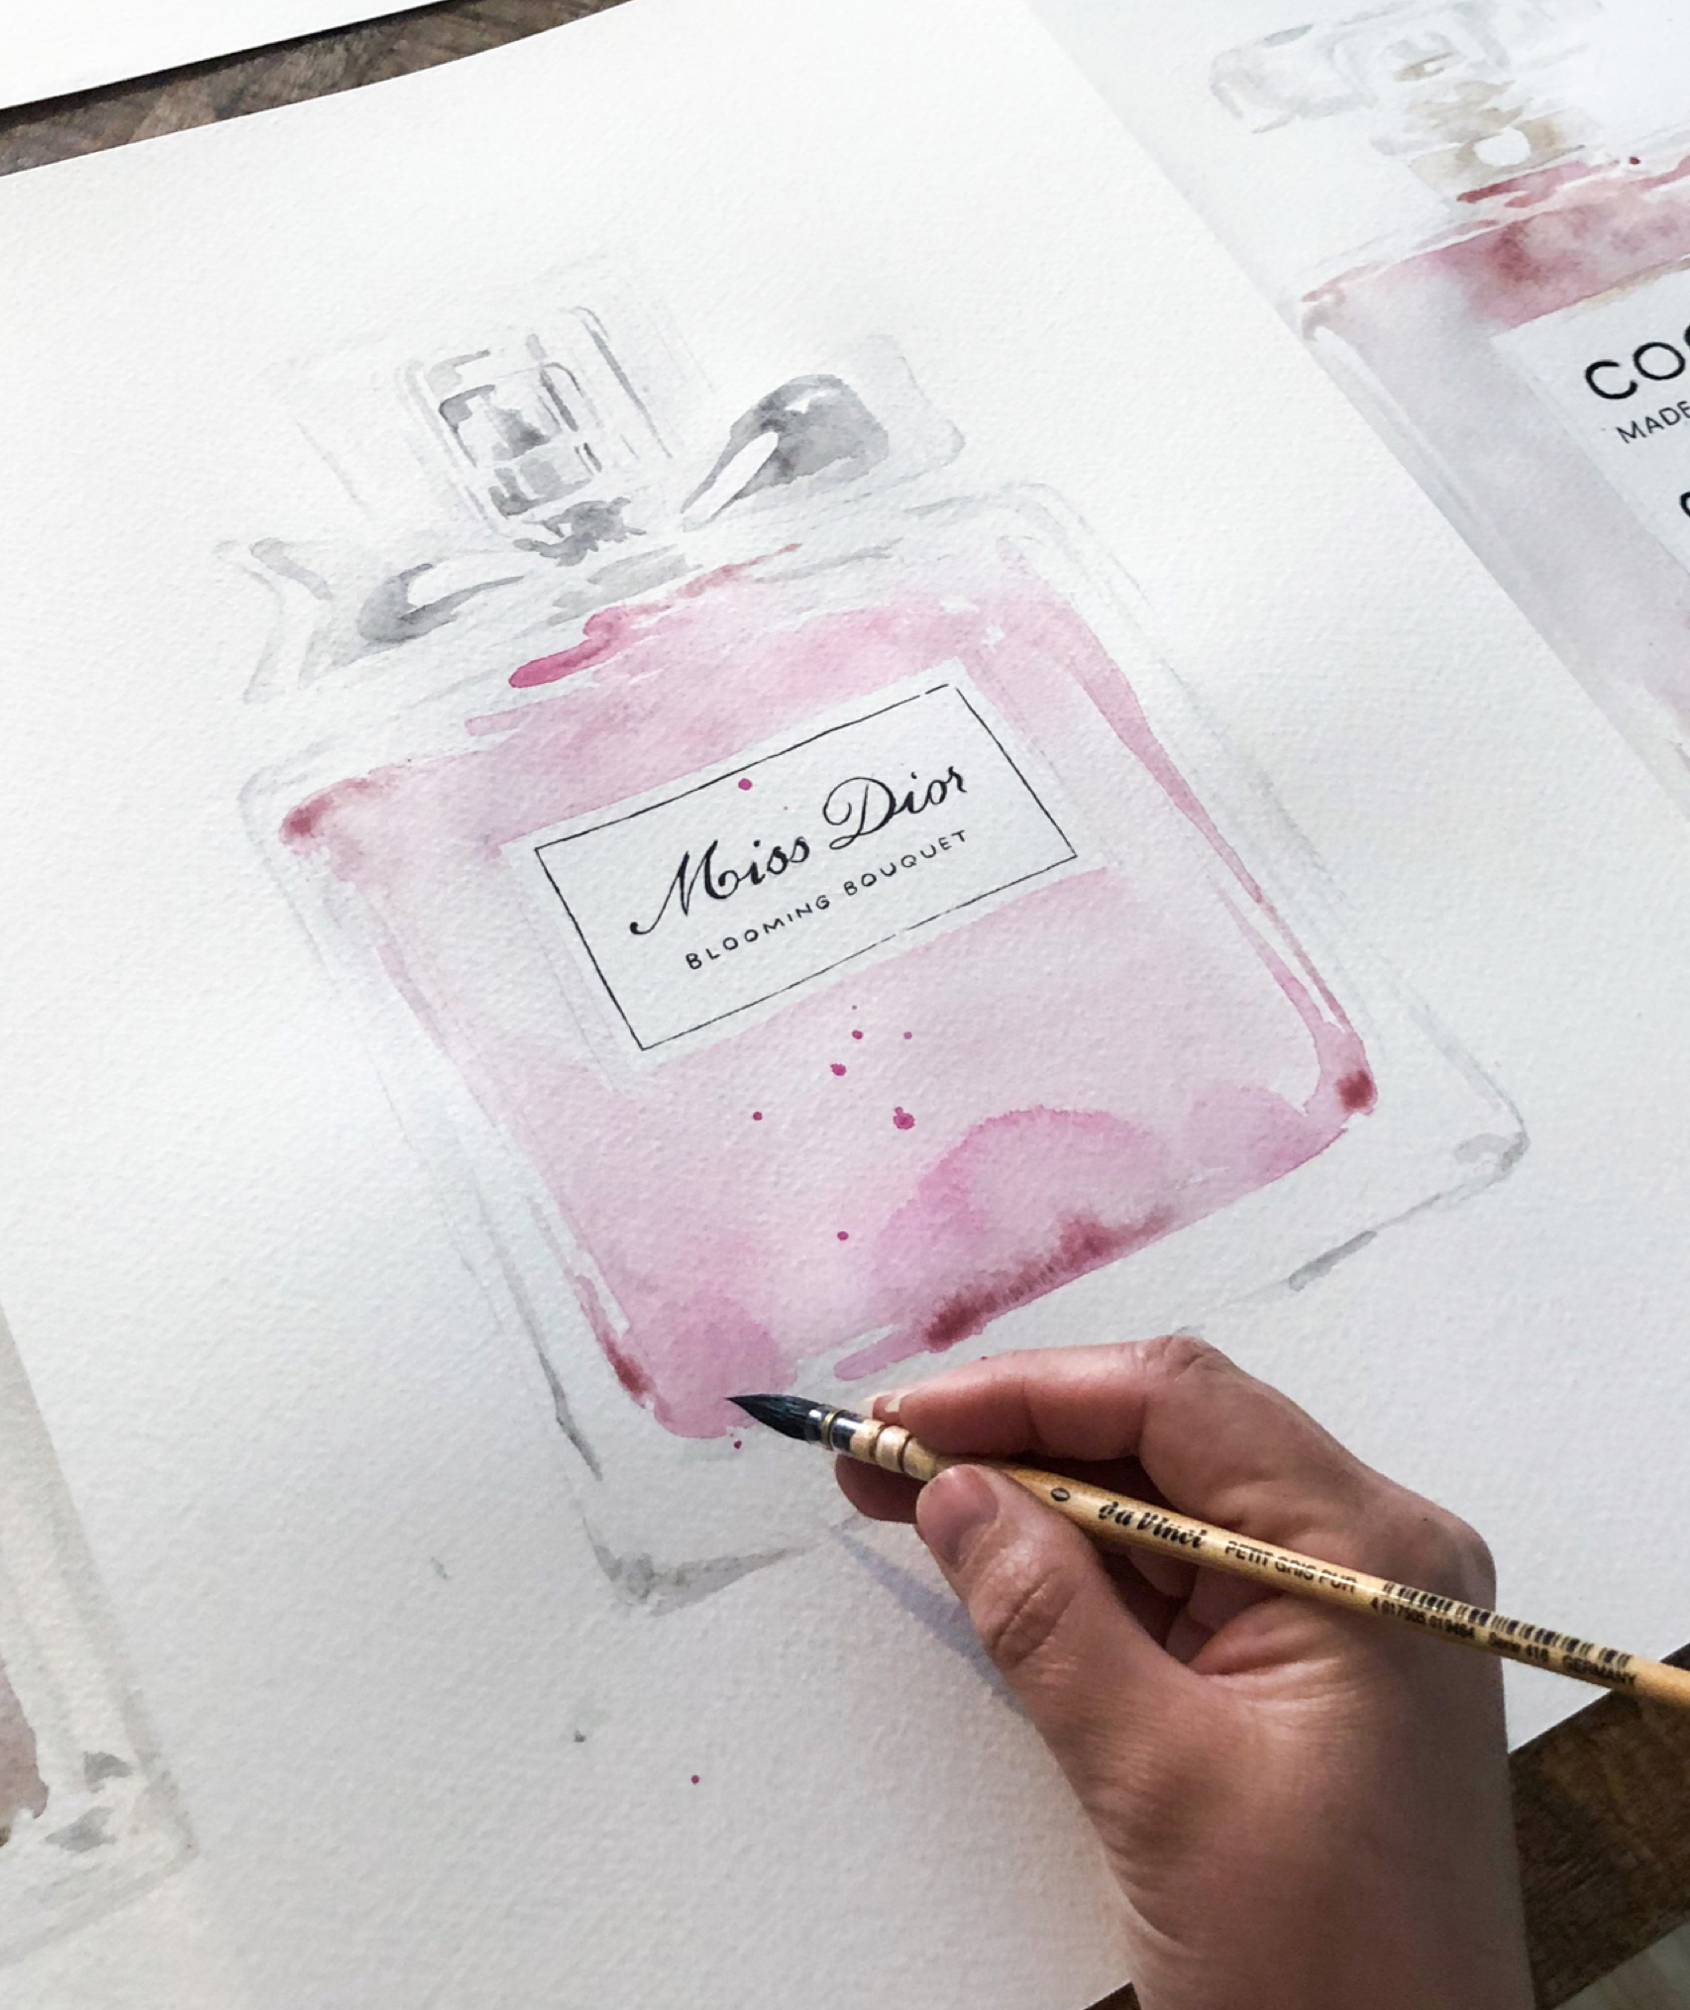 Miss Dior
BLOOMING BOUQUET
COC
MADE
0 da Vinci PETIT GRIS PUR
4 017505 019464 Serie 418 GERMANY